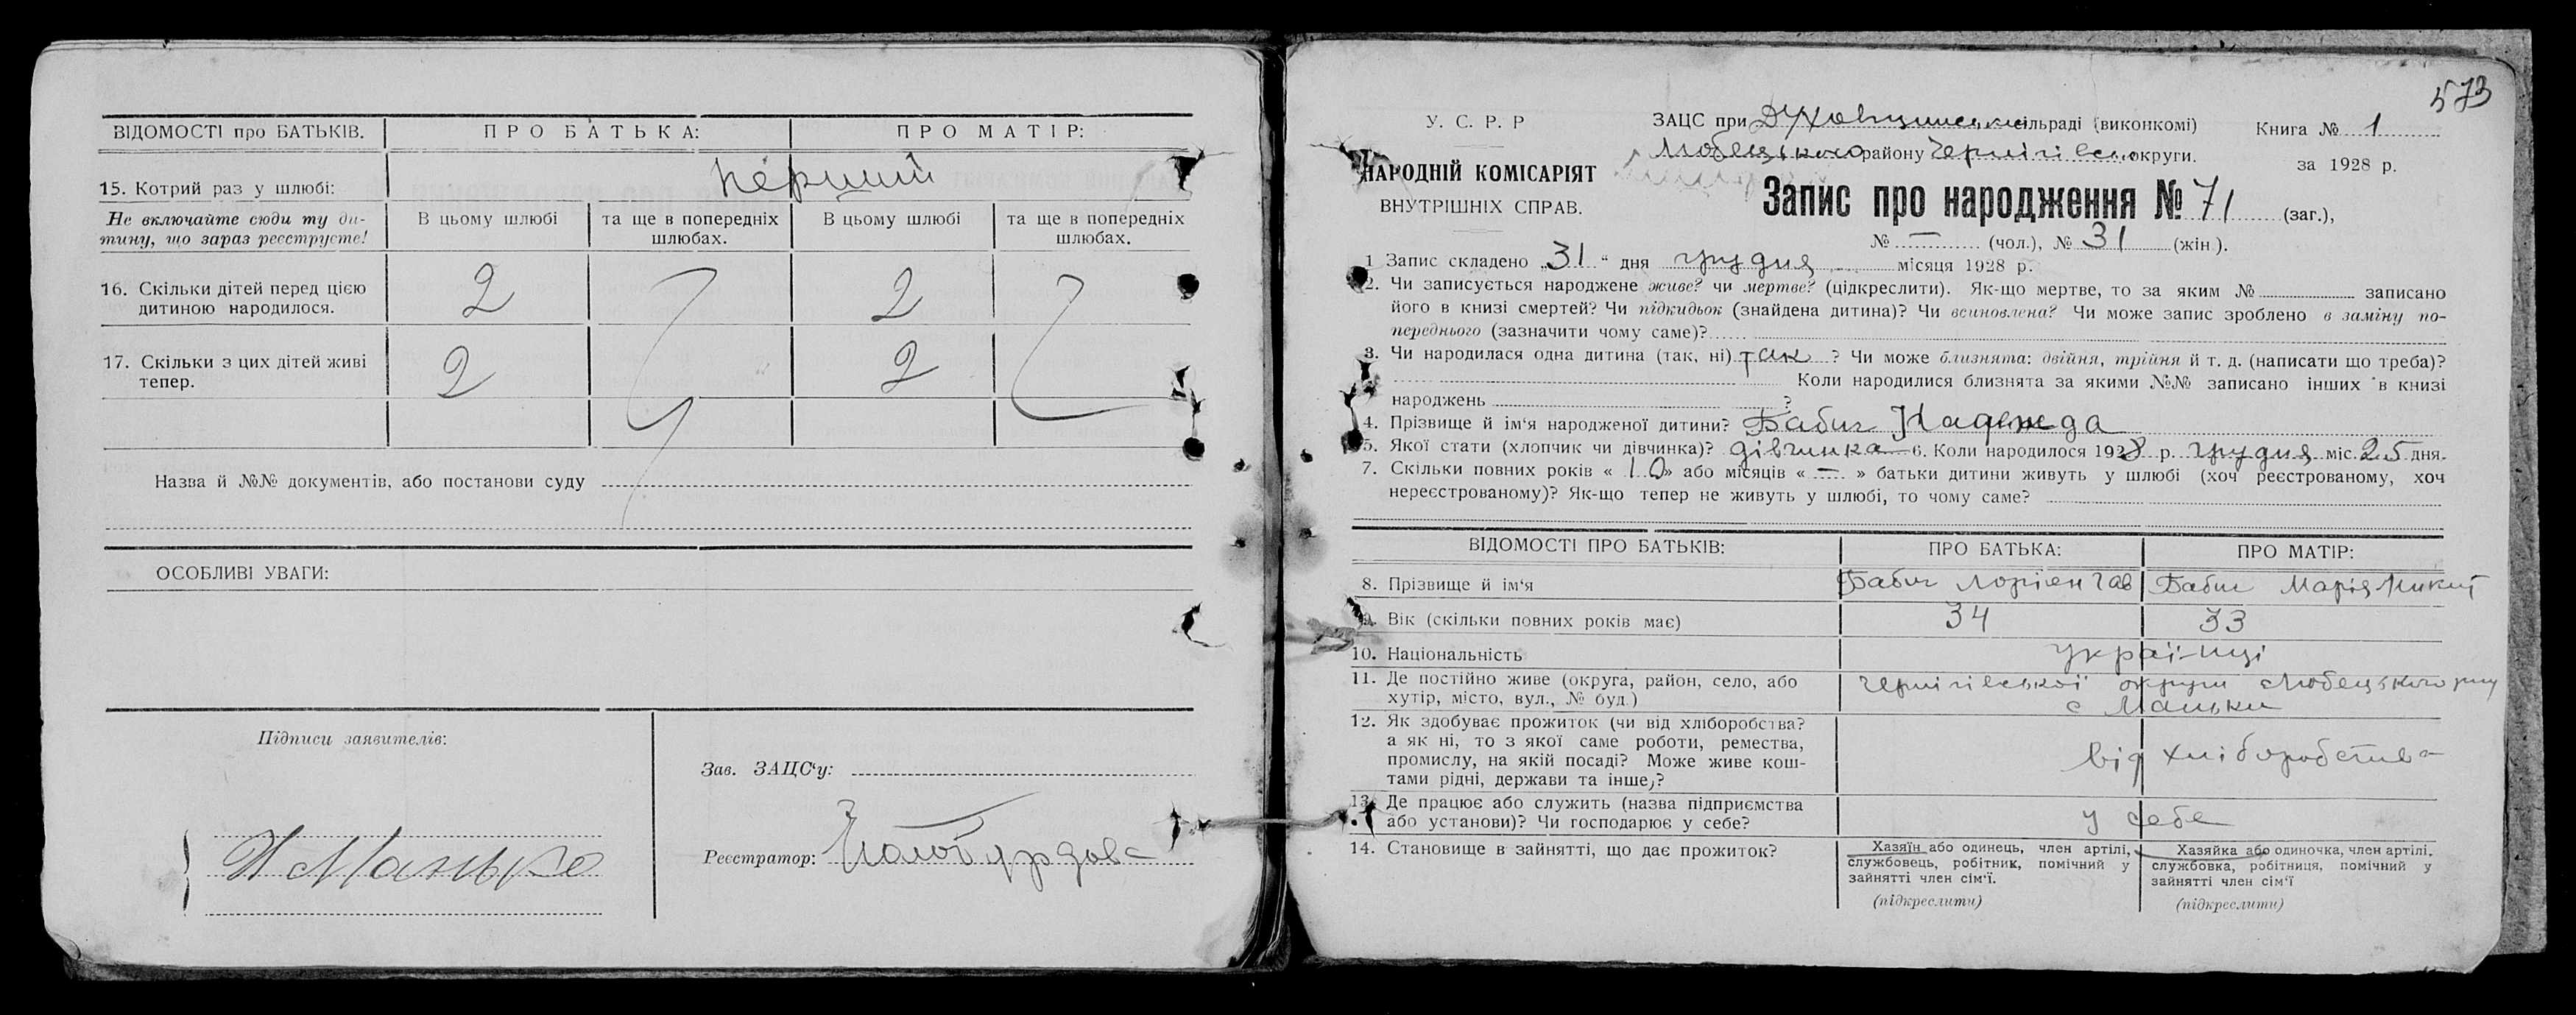 ВІДОМОСТІ про БАТЬКІВ. ПРО БАТЬКА: ПРО МАТІР:
15. Котрий раз у шлюбі: перший
Не включайте сюди ту ди-
тину, що зараз реєструєте!
В цьому шлюбі
та ще в попередніх
шлюбах.
В цьому шлюбі
та ще в попередніх
шлюбах.
16. Скільки дітей перед цією
дитиною народилося.
2 2
17. Скільки з цих дітей живі
тепер.
2 2
Назва й №№ документів, або постанови суду
ОСОБЛИВІ УВАГИ:
Підписи заявителів:
Зав. ЗАЦС'у:
Реєстратор:
573
У. С. Р. Р
НАРОДНІЙ КОМІСАРІЯТ
ВНУТРІШНІХ СПРАВ.
ЗАЦС при сільраді (виконкомі)
Любецького району Чернігівсь округи.
Книга № 1
за 1928 р.
Запис про народження № 71 (заг.),
№ — (чол.), № 31 (жін).
1 Запис складено „31“ дня грудня місяця 1928 р.
2. Чи записується народжене живе? чи мертве? (підкреслити). Як-що мертве, то за яким № записано
його в книзі смертей? Чи підкидьок (знайдена дитина)? Чи всиновлена? Чи може запис зроблено в заміну по-
переднього (зазначити чому саме)?
3. Чи народилася одна дитина (так, ні) так ? Чи може близнята: двійня, трійня й т. д. (написати що треба)?
Коли народилися близнята за якими №№ записано інших в книзі
народжень ?
4. Прізвище й ім'я народженої дитини? Бабич Надежда
5. Якої стати (хлопчик чи дівчинка)? дівчинка 6. Коли народилося 1928 р. грудня міс. 25 дня.
7. Скільки повних років « 10 » або місяців « — » батьки дитини живуть у шлюбі (хоч реєстрованому, хоч
нереєстрованому)? Як-що тепер не живуть у шлюбі, то чому саме?
ВІДОМОСТІ ПРО БАТЬКІВ: ПРО БАТЬКА: ПРО МАТІР:
8. Прізвище й ім'я Бабич Бабич Марія Микит
9. Вік (скільки повних років має) 34 33
10. Національність українці
11. Де постійно живе (округа, район, село, або
хутір, місто, вул., № буд.)
Чернігівської округи Любецького р-ну
с Маньки
12. Як здобуває прожиток (чи від хліборобства?
а як ні, то з якої саме роботи, ремества,
промислу, на якій посаді? Може живе кош-
тами рідні, держави та інше)?
від хліборобства
13. Де працює або служить (назва підприємства
або установи)? Чи господарює у себе?
у себе
14. Становище в зайнятті, що дає прожиток?
Хазяїн або одинець, член артілі,
службовець, робітник, помічний у
зайнятті член сім'ї.
(підкреслити)
Хазяйка або одиночка, член артілі,
службовка, робітниця, помічний у
зайнятті член сім'ї
(підкреслити)